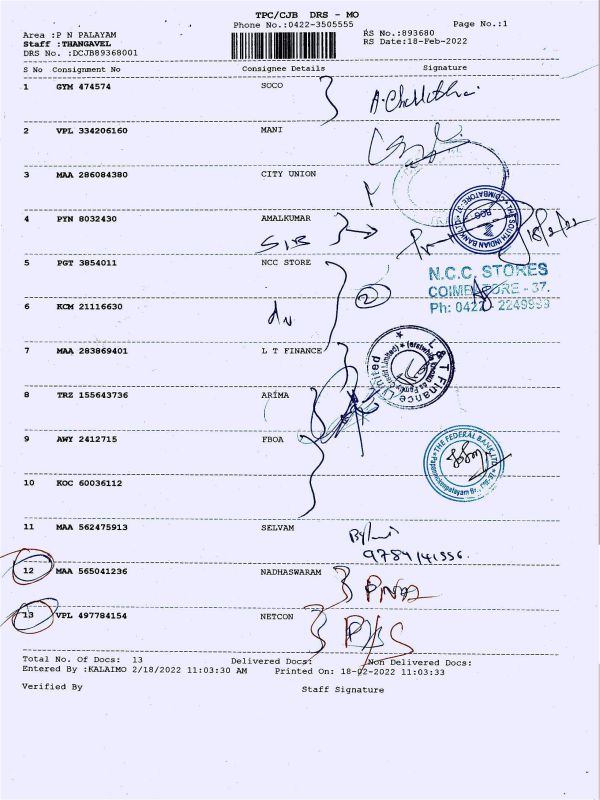 TPC/CJB DRS - MO
Phone No.:0422-3505555 Page No.:1
Area :P N PALAYAM RS No.:893680
Staff :THANGAVEL RS Date:18-Feb-2022
DRS No. :DCJB89368001
S No Consignment No Consignee Details Signature
1 GYM 474574 SOCO
2 VPL 334206160 MANI
3 MAA 286084380 CITY UNION
4 PYN 8032430 AMALKUMAR
SIB
THE SOUTH INDIAN BANK
5 PGT 3854011 NCC STORE
2
N.C.C. STORES
COIMBATORE - 37.
Ph: 0422 2249959
6 KCM 21116630
7 MAA 283869401 L T FINANCE
L & T Finance Limited
(erstwhile known as Family Credit Limited)
8 TRZ 155643736 ARIMA
9 AWY 2412715 FBOA
THE FEDERAL BANK LTD
10 KOC 60036112
11 MAA 562475913 SELVAM
12 MAA 565041236 NADHASWARAM
13 VPL 497784154 NETCON
Total No. Of Docs: 13 Delivered Docs: Non Delivered Docs:
Entered By :KALAIMO 2/18/2022 11:03:30 AM Printed On: 18-02-2022 11:03:33
Verified By Staff Signature